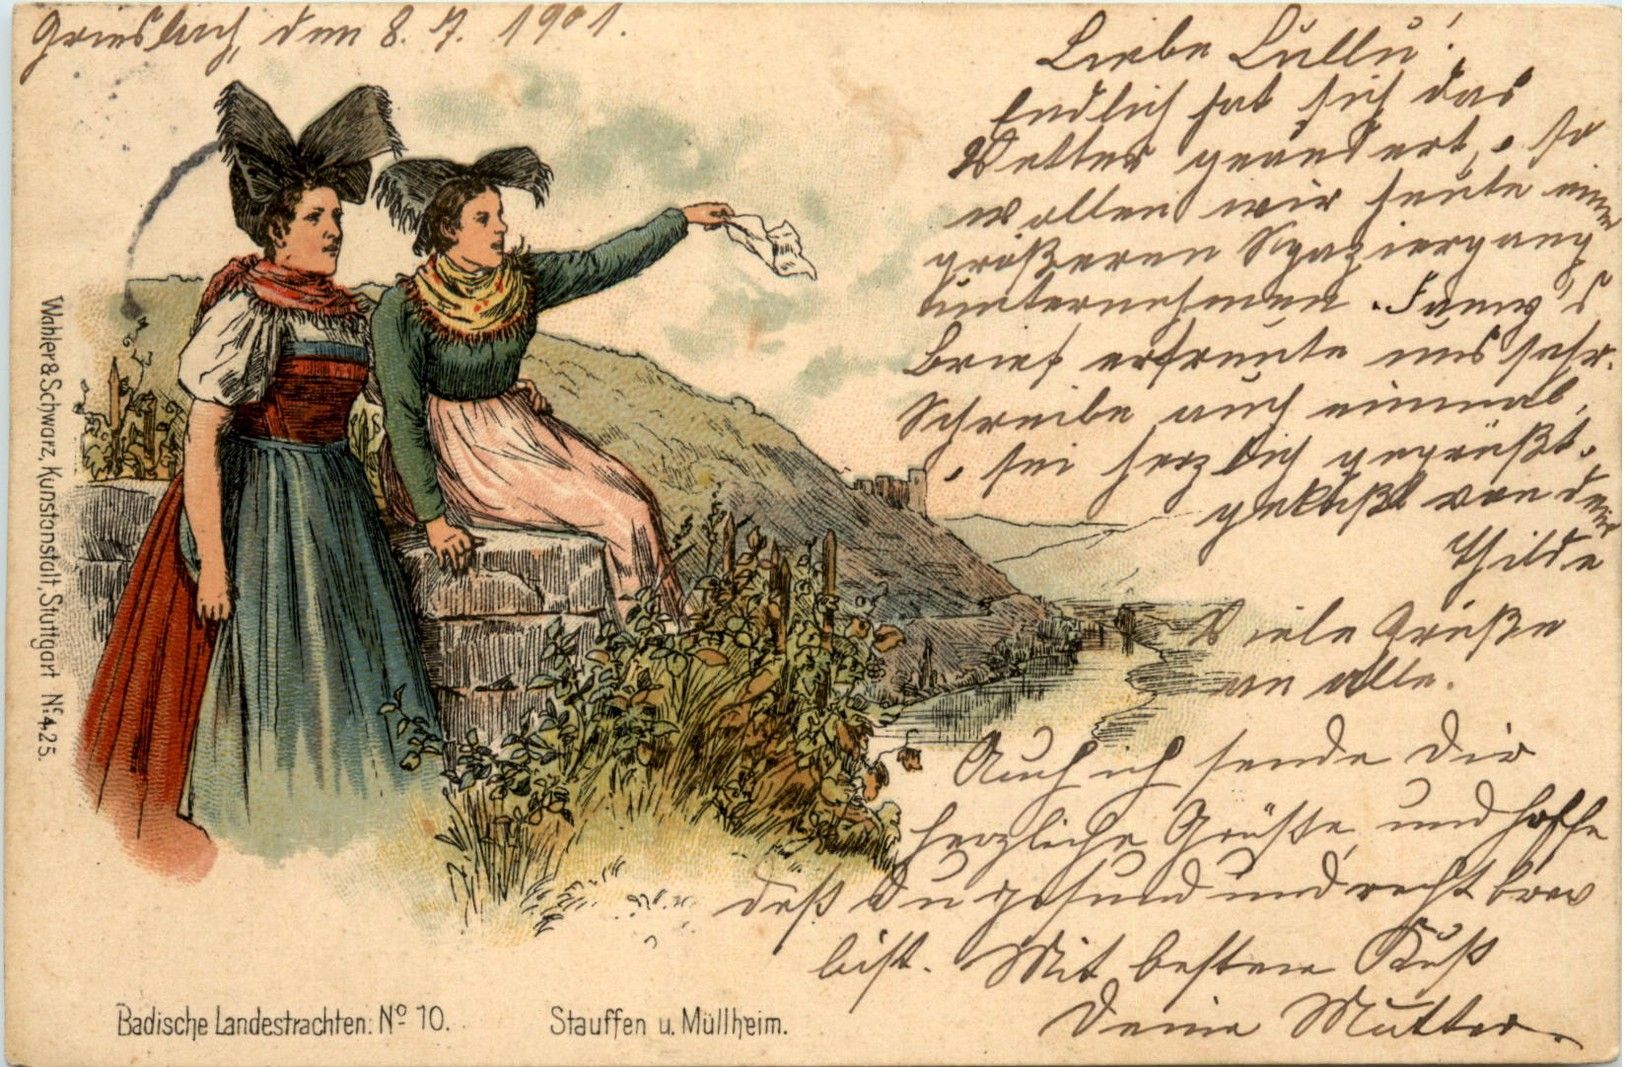 Griesbach, den 8. 7. 1901.
Liebe Lullu!
Endlich hat sich das
Wetter geändert, so
wollen wir heute einen
größeren Spaziergang
unternehmen. Fanny's
Brief erfreute uns sehr.
Schreibe auch einmal,
sei herzlich gegrüßt,
geküßt von deiner
Thilde
Viele Grüße
an alle.
Auch ich sende Dir
herzliche Grüße und hoffe
daß Du gesund und recht brav
bist. Mit bestem Kuß
Deine Mutter.
Wahler & Schwarz, Kunstanstalt, Stuttgart Nº 425.
Badische Landestrachten: Nº 10. Stauffen u. Müllheim.